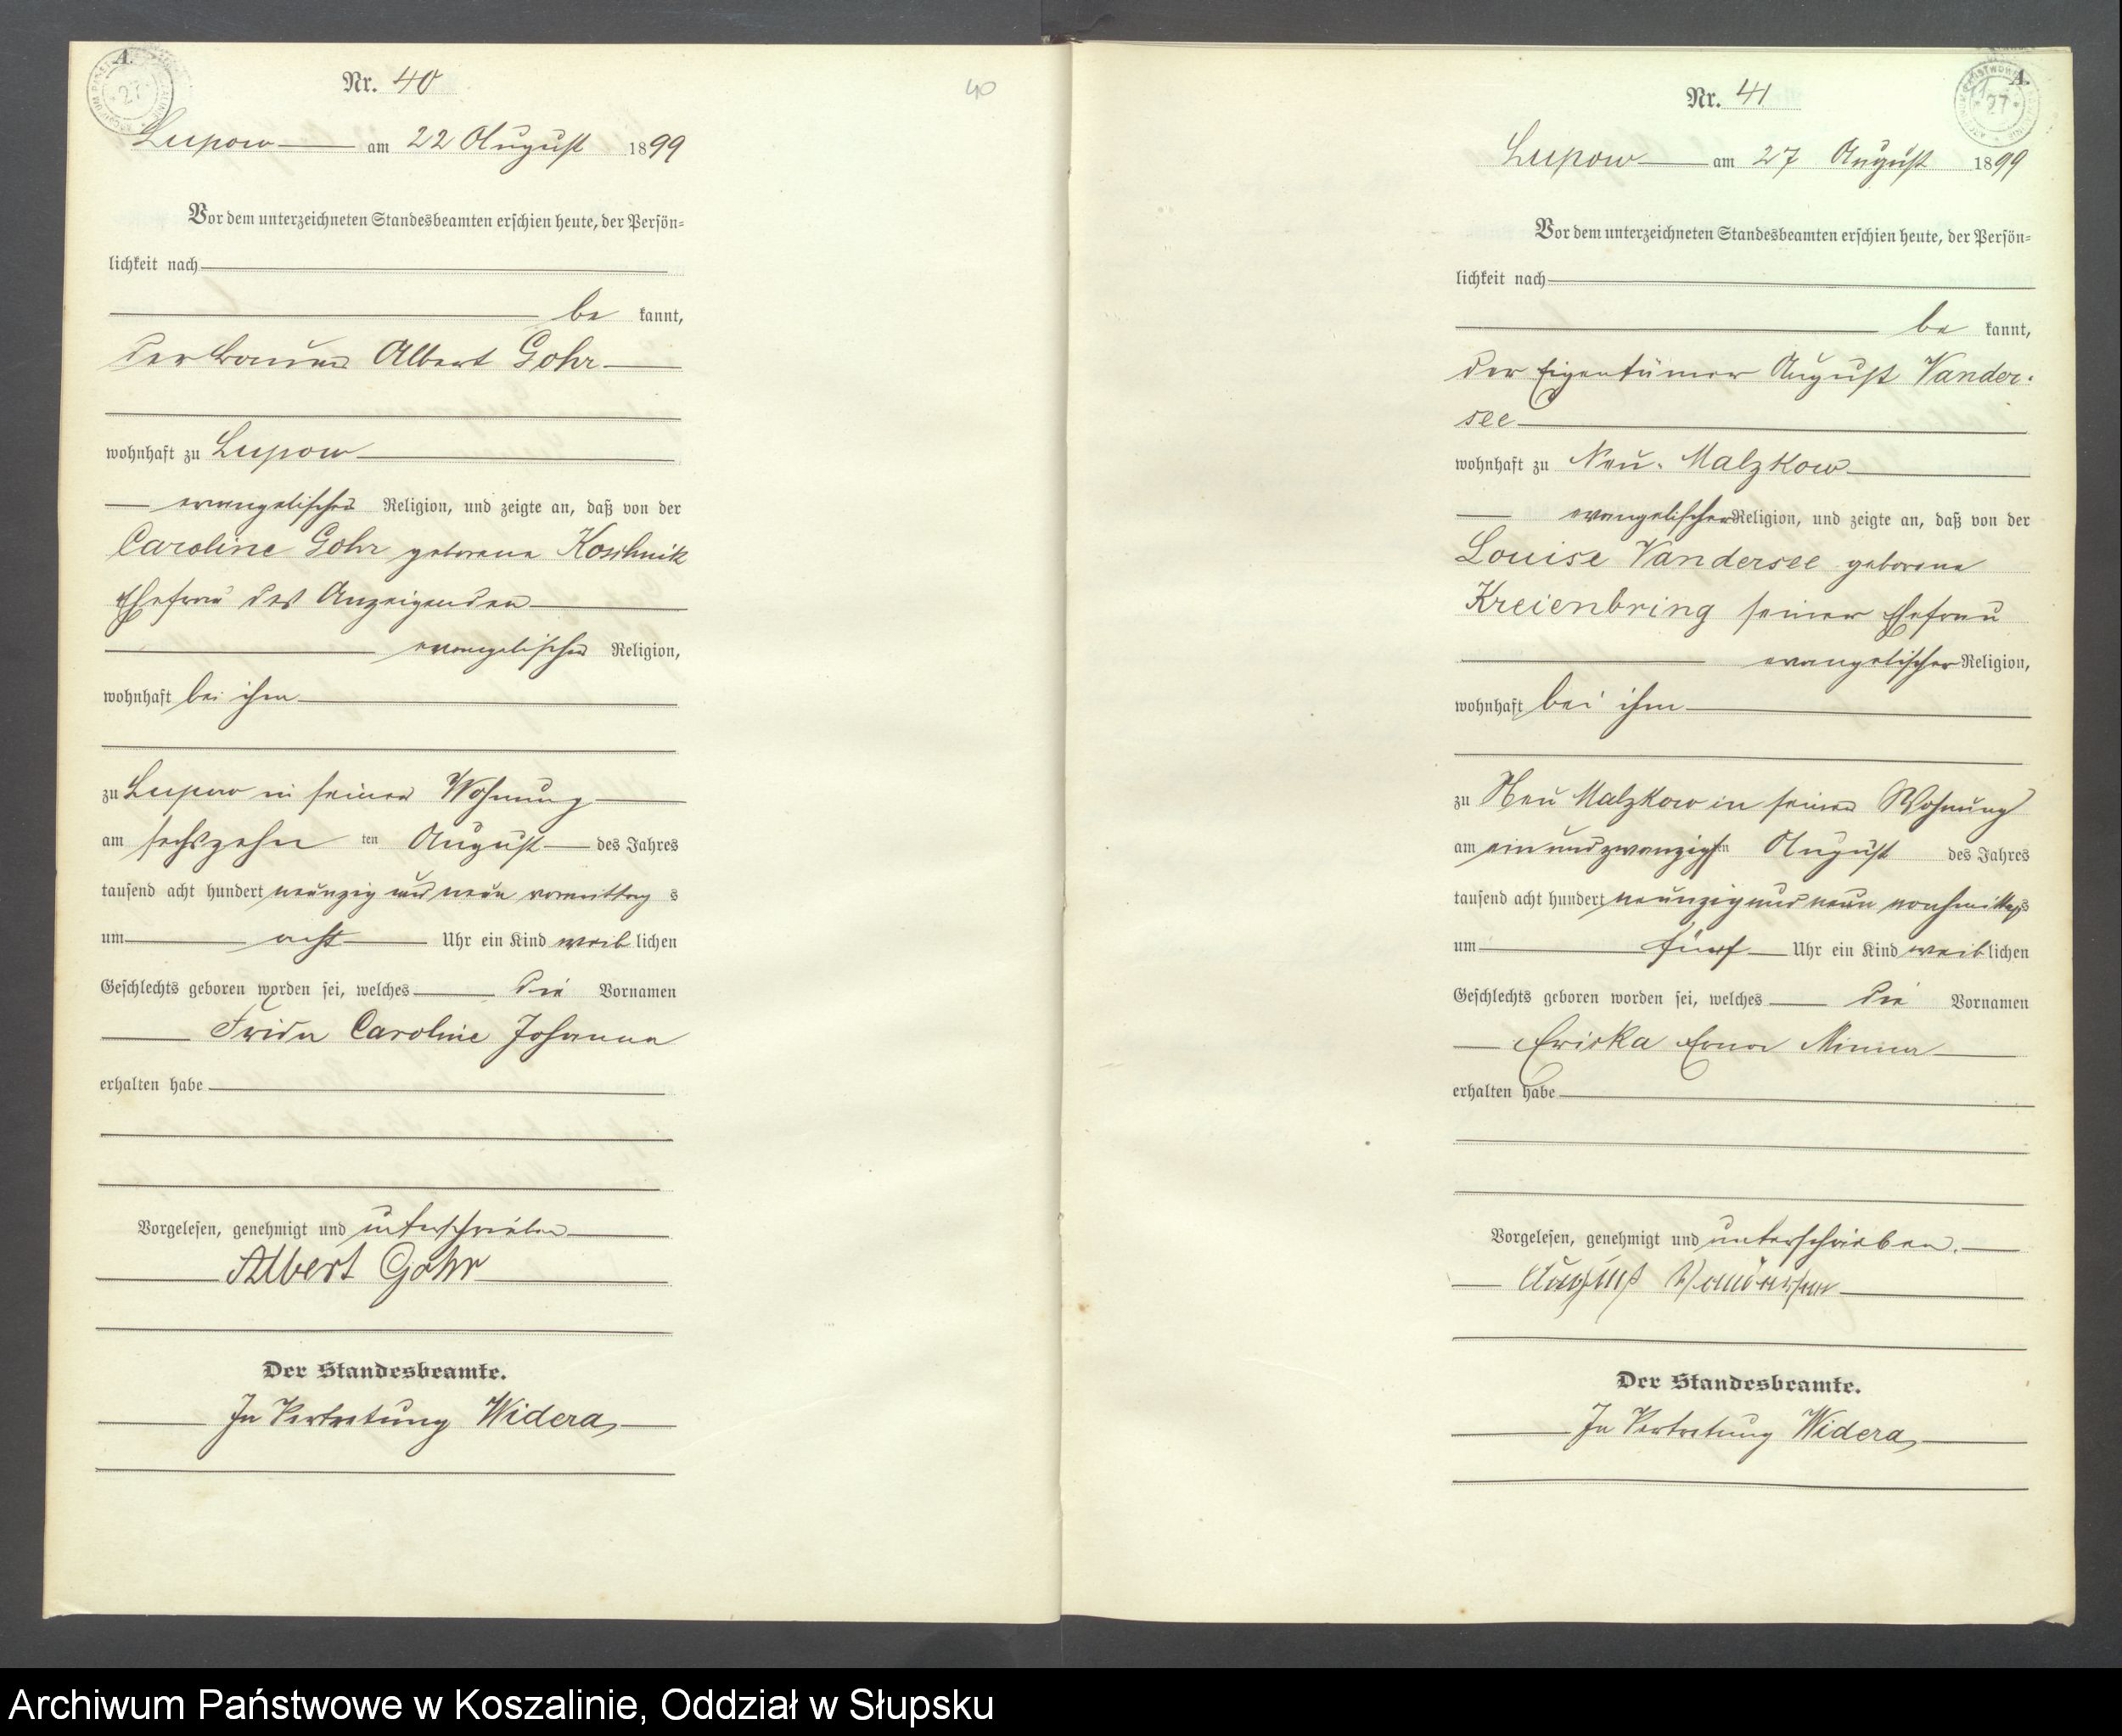 A.
27
Nr. 40
Lupow am 22 August 1899
Vor dem unterzeichneten Standesbeamten erschien heute, der Persön=
lichkeit nach
be kannt,
der Bauer Albert Gohr
wohnhaft zu Lupow
evangelischer Religion, und zeigte an, daß von der
Caroline Gohr geborene Koschnik
Ehefrau des Anzeigenden
evangelischer Religion,
wohnhaft bei ihm
zu Lupow in seiner Wohnung
am sechszehn ten August des Jahres
tausend acht hundert neunzig und neun vormittag s
um acht Uhr ein Kind weib lichen
Geschlechts geboren worden sei, welches die Vornamen
Frida Caroline Johanna
erhalten habe
Vorgelesen, genehmigt und unterschrieben
Albert Gohr
Der Standesbeamte.
In Vertretung Widera
40
A.
27
Nr. 41
Lupow am 27 August 1899
Vor dem unterzeichneten Standesbeamten erschien heute, der Persön=
lichkeit nach
be kannt,
der Eigentümer August Vander-
see
wohnhaft zu Neu-Malzkow
evangelischer Religion, und zeigte an, daß von der
Louise Vandersee geborene
Kreienbring seiner Ehefrau
evangelischer Religion,
wohnhaft bei ihm
zu Neu Malzkow in seiner Wohnung
am ein und zwanzigsten August des Jahres
tausend acht hundert neunzig und neun nachmittags
um fünf Uhr ein Kind weib lichen
Geschlechts geboren worden sei, welches die Vornamen
Ericka Erna Minna
erhalten habe
Vorgelesen, genehmigt und unterschrieben.
August Vandersee
Der Standesbeamte.
In Vertretung Widera
Archiwum Państwowe w Koszalinie, Oddział w Słupsku